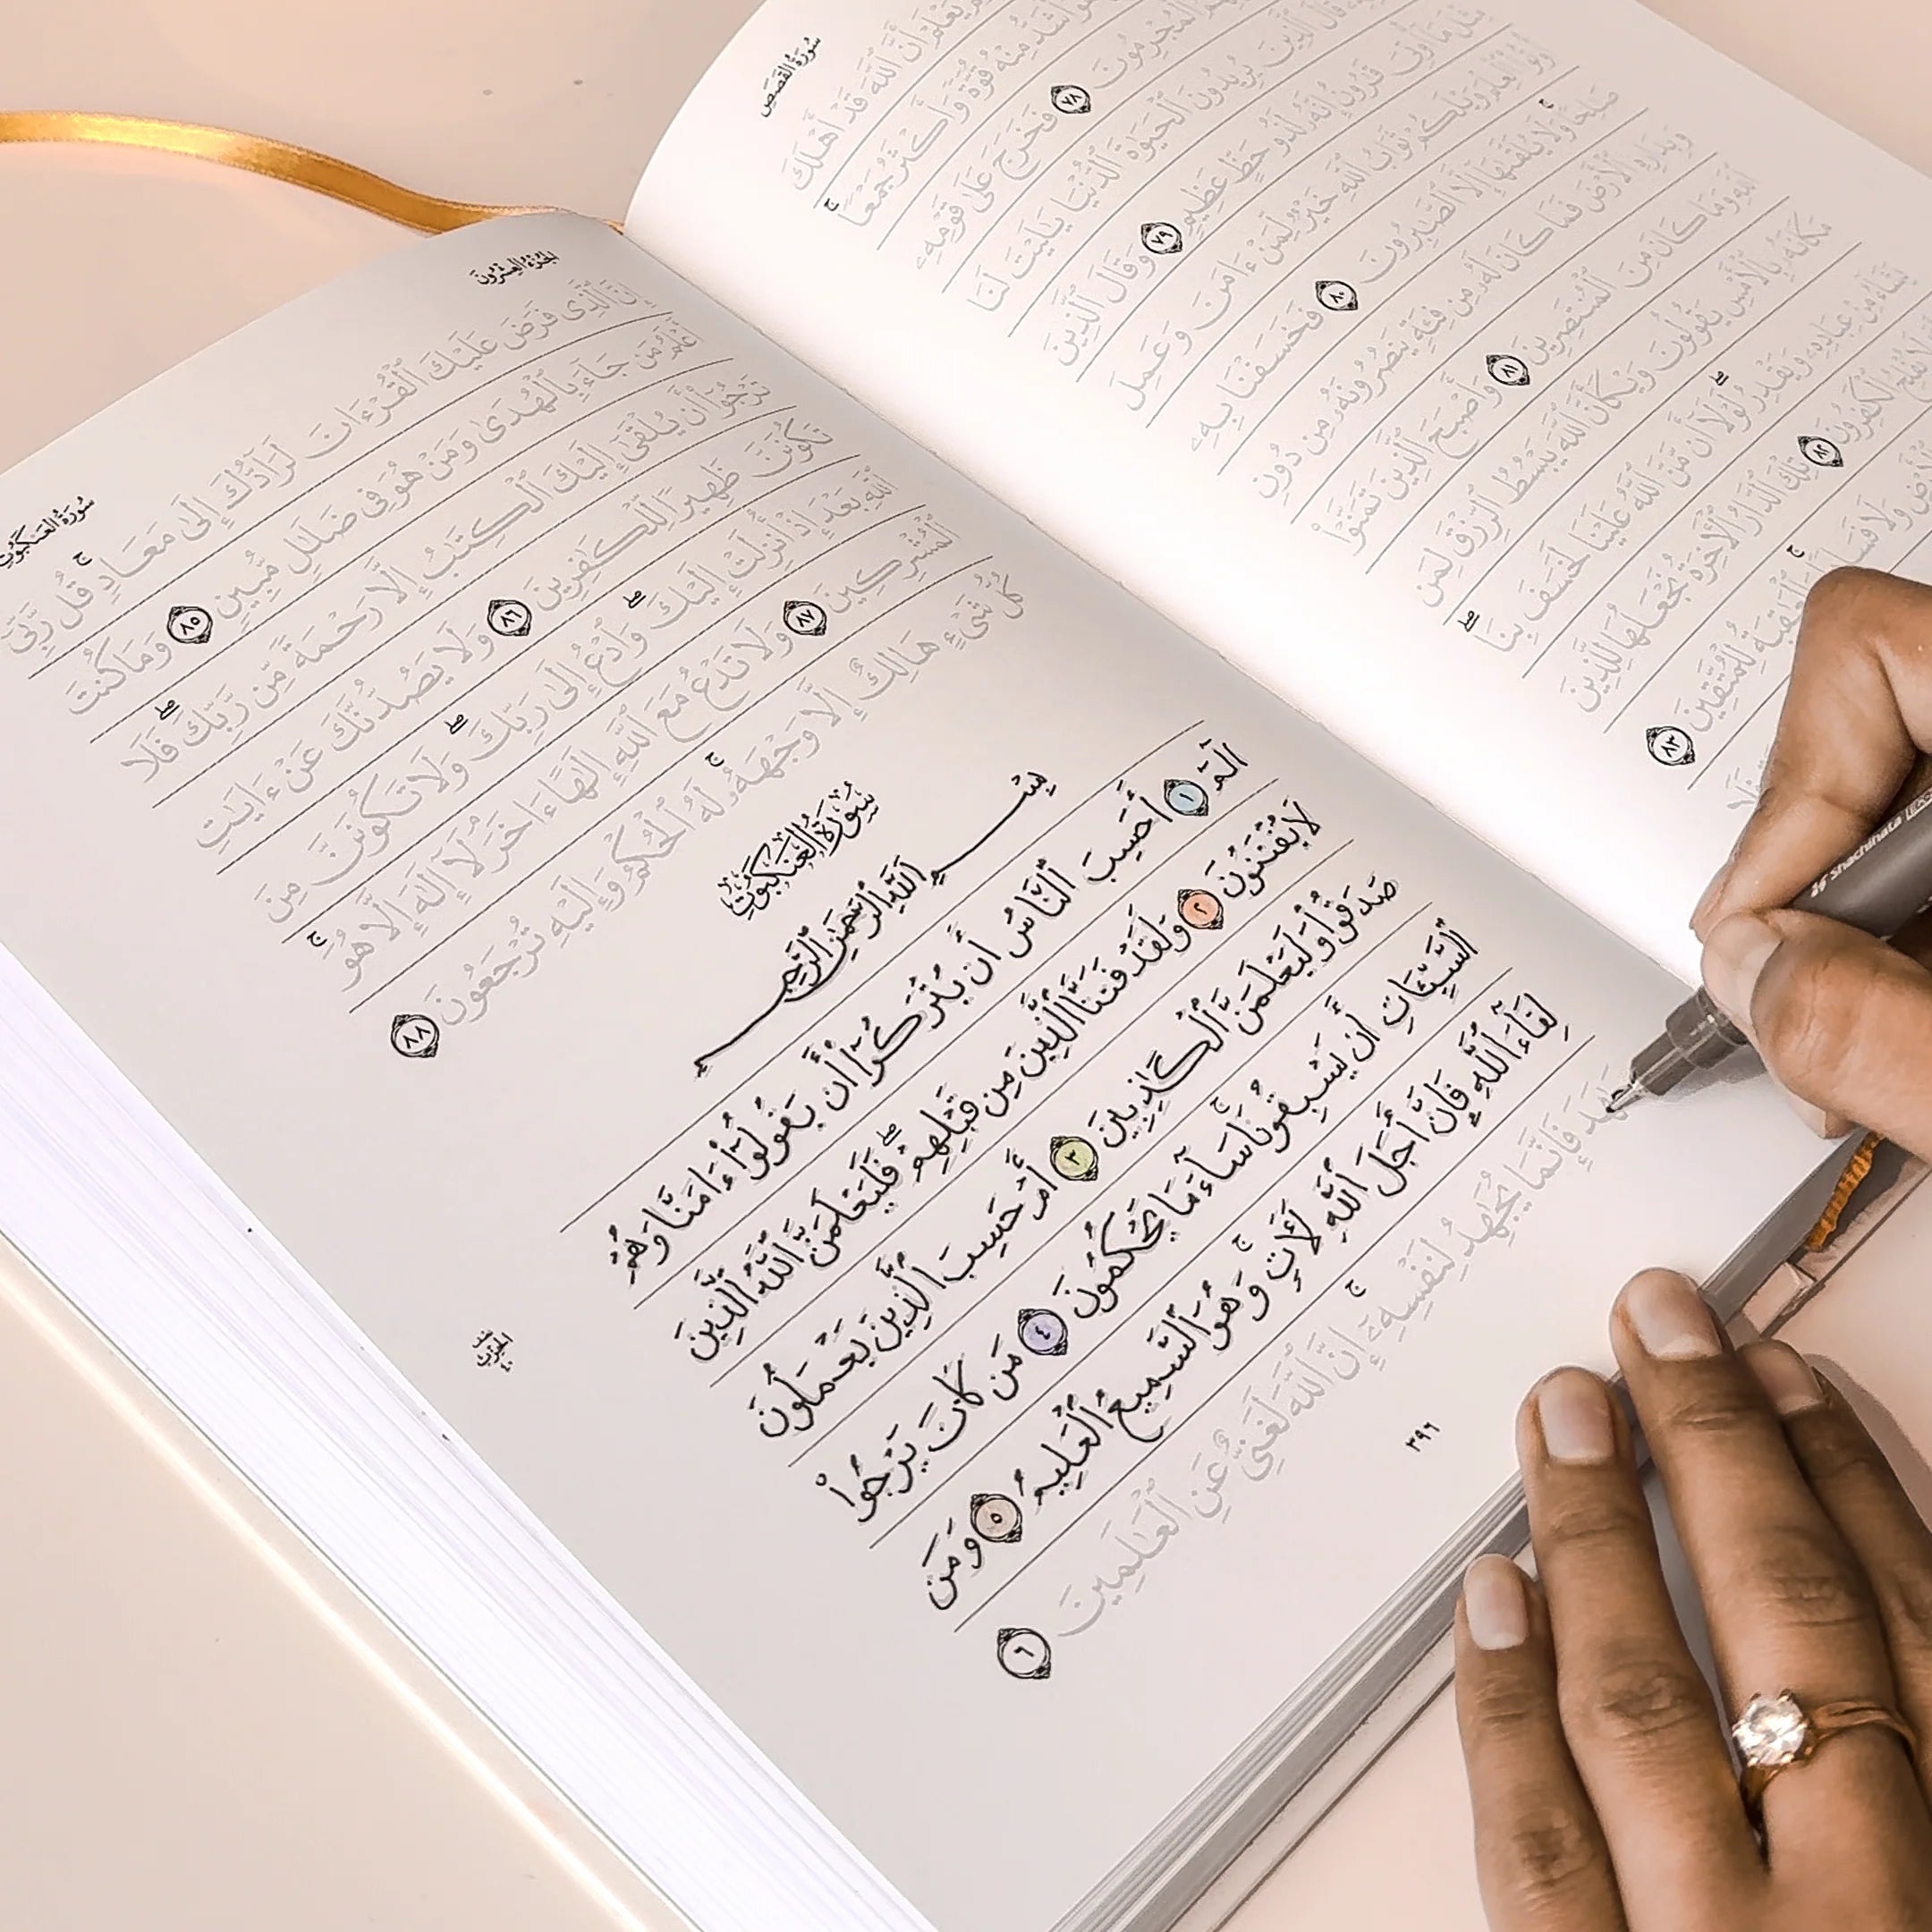 سُورَةُ القَصَصِ
يَعۡلَمۡ أَنَّ ٱللَّهَ قَدۡ أَهۡلَكَ
أَشَدُّ مِنۡهُ قُوَّةٗ وَأَكۡثَرُ جَمۡعٗاۚ
ٱلۡمُجۡرِمُونَ ٧٨ فَخَرَجَ عَلَىٰ قَوۡمِهِۦ
قَالَ ٱلَّذِينَ يُرِيدُونَ ٱلۡحَيَوٰةَ ٱلدُّنۡيَا يَٰلَيۡتَ لَنَا
مِثۡلَ مَآ أُوتِيَ قَٰرُونُ إِنَّهُۥ لَذُو حَظٍّ عَظِيمٖ ٧٩ وَقَالَ ٱلَّذِينَ
أُوتُواْ ٱلۡعِلۡمَ وَيۡلَكُمۡ ثَوَابُ ٱللَّهِ خَيۡرٞ لِّمَنۡ ءَامَنَ وَعَمِلَ
صَٰلِحٗاۚ وَلَا يُلَقَّىٰهَآ إِلَّا ٱلصَّٰبِرُونَ ٨٠ فَخَسَفۡنَا بِهِۦ
وَبِدَارِهِ ٱلۡأَرۡضَ فَمَا كَانَ لَهُۥ مِن فِئَةٖ يَنصُرُونَهُۥ مِن دُونِ
ٱللَّهِ وَمَا كَانَ مِنَ ٱلۡمُنتَصِرِينَ ٨١ وَأَصۡبَحَ ٱلَّذِينَ تَمَنَّوۡاْ
مَكَانَهُۥ بِٱلۡأَمۡسِ يَقُولُونَ وَيۡكَأَنَّ ٱللَّهَ يَبۡسُطُ ٱلرِّزۡقَ لِمَن
يَشَآءُ مِنۡ عِبَادِهِۦ وَيَقۡدِرُۖ لَوۡلَآ أَن مَّنَّ ٱللَّهُ عَلَيۡنَا لَخَسَفَ بِنَاۖ
لَا يُفۡلِحُ ٱلۡكَٰفِرُونَ ٨٢ تِلۡكَ ٱلدَّارُ ٱلۡأٓخِرَةُ نَجۡعَلُهَا لِلَّذِينَ
ٱلۡأَرۡضِ وَلَا فَسَادٗاۚ وَٱلۡعَٰقِبَةُ لِلۡمُتَّقِينَ ٨٣
الجُزْءُ العِشْرُونَ
سُورَةُ العَنكَبُوتِ
إِنَّ ٱلَّذِي فَرَضَ عَلَيۡكَ ٱلۡقُرۡءَانَ لَرَآدُّكَ إِلَىٰ مَعَادٖۚ قُل رَّبِّيٓ
أَعۡلَمُ مَن جَآءَ بِٱلۡهُدَىٰ وَمَنۡ هُوَ فِي ضَلَٰلٖ مُّبِينٖ ٨٥ وَمَا كُنتَ
تَرۡجُوٓاْ أَن يُلۡقَىٰٓ إِلَيۡكَ ٱلۡكِتَٰبُ إِلَّا رَحۡمَةٗ مِّن رَّبِّكَۖ فَلَا
تَكُونَنَّ ظَهِيرٗا لِّلۡكَٰفِرِينَ ٨٦ وَلَا يَصُدُّنَّكَ عَنۡ ءَايَٰتِ
ٱللَّهِ بَعۡدَ إِذۡ أُنزِلَتۡ إِلَيۡكَۖ وَٱدۡعُ إِلَىٰ رَبِّكَۖ وَلَا تَكُونَنَّ مِنَ
ٱلۡمُشۡرِكِينَ ٨٧ وَلَا تَدۡعُ مَعَ ٱللَّهِ إِلَٰهًا ءَاخَرَۘ لَآ إِلَٰهَ إِلَّا هُوَۚ
كُلُّ شَيۡءٍ هَالِكٌ إِلَّا وَجۡهَهُۥۚ لَهُ ٱلۡحُكۡمُ وَإِلَيۡهِ تُرۡجَعُونَ ٨٨
سُورَةُ العَنكَبُوتِ
بِسۡمِ ٱللَّهِ ٱلرَّحۡمَٰنِ ٱلرَّحِيمِ
الٓمٓ ١ أَحَسِبَ ٱلنَّاسُ أَن يُتۡرَكُوٓاْ أَن يَقُولُوٓاْ ءَامَنَّا وَهُمۡ
لَا يُفۡتَنُونَ ٢ وَلَقَدۡ فَتَنَّا ٱلَّذِينَ مِن قَبۡلِهِمۡۖ فَلَيَعۡلَمَنَّ ٱللَّهُ ٱلَّذِينَ
صَدَقُواْ وَلَيَعۡلَمَنَّ ٱلۡكَٰذِبِينَ ٣ أَمۡ حَسِبَ ٱلَّذِينَ يَعۡمَلُونَ
ٱلسَّيِّـَٔاتِ أَن يَسۡبِقُونَاۚ سَآءَ مَا يَحۡكُمُونَ ٤ مَن كَانَ يَرۡجُواْ
لِقَآءَ ٱللَّهِ فَإِنَّ أَجَلَ ٱللَّهِ لَأٓتٖۚ وَهُوَ ٱلسَّمِيعُ ٱلۡعَلِيمُ ٥ وَمَن
جَٰهَدَ فَإِنَّمَا يُجَٰهِدُ لِنَفۡسِهِۦٓۚ إِنَّ ٱللَّهَ لَغَنِيٌّ عَنِ ٱلۡعَٰلَمِينَ ٦
الحزب
٤٠
٣٩٦
Shachihata